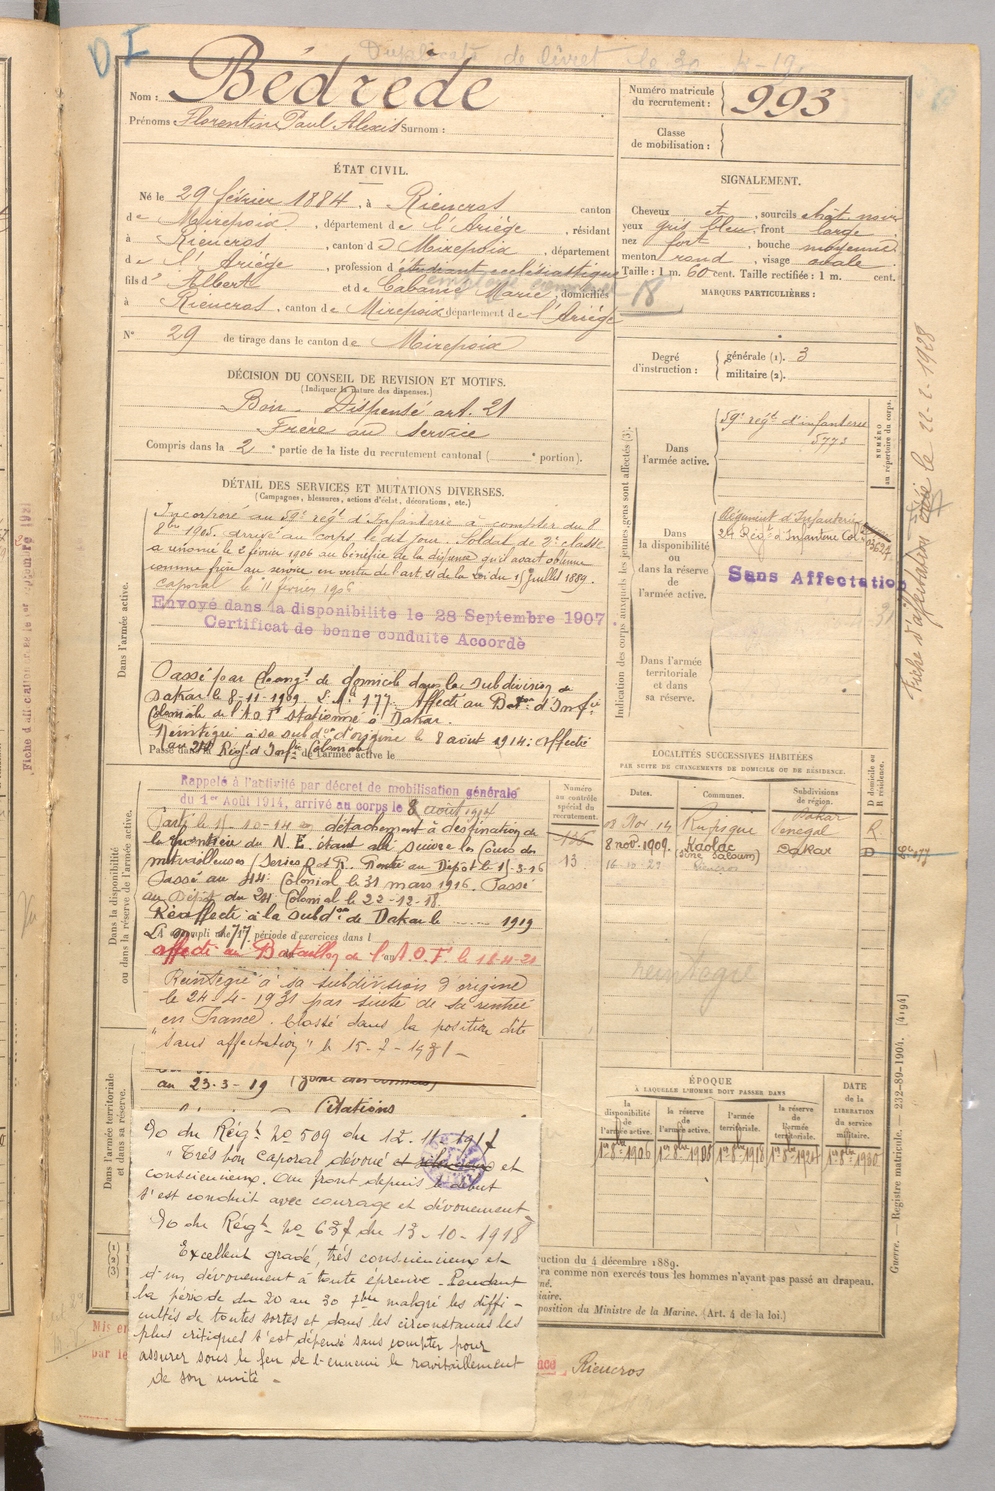 D I
Duplicata de livret le 30
Nom : Bédrède
Prénoms : Florentin Paul Alexis Surnom :
Numéro matricule du recrutement : 993
Classe de mobilisation :
ÉTAT CIVIL.
Né le 29 février 1884, à Rieucros canton
de Mirepoix, département de l'Ariège, résidant
à Rieucros, canton de Mirepoix, département
de l'Ariège, profession d'étudiant ecclésiastique
fils d' Albert et de Cabanié Marie, domiciliés
à Rieucros, canton de Mirepoix département de l'Ariège
N° 29 de tirage dans le canton de Mirepoix
SIGNALEMENT.
Cheveux et, sourcils chât noir
yeux gris bleu, front large
nez fort, bouche moyenne
menton rond, visage ovale
Taille : 1 m. 60 cent. Taille rectifiée : 1 m. cent.
18
MARQUES PARTICULIÈRES :
Degré d'instruction : générale (1). 3
militaire (2).
DÉCISION DU CONSEIL DE REVISION ET MOTIFS.
(Indiquer la nature des dispenses.)
Bon - Dispensé art. 21
Frère au service
Compris dans la 2e partie de la liste du recrutement cantonal ( e portion).
DÉTAIL DES SERVICES ET MUTATIONS DIVERSES.
(Campagnes, blessures, actions d'éclat, décorations, etc.)
Dans l'armée active.
Incorporé au 59e régt d'Infanterie à compter du 8
8bre 1905. arrivé au corps le dit jour. Soldat de 2e classe
a renoncé le 2 février 1906 au bénéfice de la dispense qu'il avait obtenue
comme frère au service en vertu de l'art. 21 de la loi du 15 Juillet 1889.
Caporal le 11 février 1906
Envoyé dans la disponibilite le 28 Septembre 1907
Certificat de bonne conduite Accordè
Passé par Changt de domicile dans la subdivision de
Dakar le 8-11-1909 177. Affecté au Baton d'Infie
Coloniale de l'A.O.F. stationné à Dakar.
Réintégré à sa subdon d'origine le 8 août 1914 : affecté
au 24e Régt d'Infie Coloniale
Passé dans la de l'armée active le
Indication des corps auxquels les jeunes gens sont affectés (3).
Dans l'armée active.
59e régt d'infanterie
5773
NUMÉRO au répertoire du corps.
Dans la disponibilité ou dans la réserve de l'armée active.
Régiment d'Infanterie
24 Régt d'Infanterie Cole
Sans Affectation
Dans l'armée territoriale et dans sa réserve.
Fiche d'affectation le 22-2-1928
Dans la disponibilité ou dans la réserve de l'armée active.
Rappelé à l'activité par décret de mobilisation générale
du 1er Août 1914, arrivé au corps le 8 août 1914
Parti le 15-10-14 en détachement à destination de
la frontière du N.E. étant allé suivre les Cours des
mitrailleuses (séries R et R. Rentré au Dépôt le 15-3-16
Passé au 44e Colonial le 31 mars 1916. Passé
au Dépôt du 24 Colonial le 22-12-18.
Réaffecté à la subdon de Dakar le 1919
A accompli une période d'exercices dans l
affecté au Bataillon de l'A.O.F. le 18-11-21
Réintégré à sa subdivision d'origine
le 24-4-1931 par suite de sa rentrée
en France. Classé dans la position dite
"sans affectation" le 15-2-1931 -
au 23-3-19 (zone des armées)
Numéro au contrôle spécial du recrutement.
13
LOCALITÉS SUCCESSIVES HABITÉES
PAR SUITE DE CHANGEMENTS DE DOMICILE OU DE RÉSIDENCE.
Dates. Communes. Subdivisions de région. D domicile ou R résidence.
03 Nov. 14 Rufisque Dakar Sénégal R
8 nov. 1909. Kaolac (Sine Saloum) Dakar D
16-10-27 Rieucros
reintégré
Dans l'armée territoriale et dans sa réserve.
Citations
Oo du Régt No 509 du 12-11-1917
"Très bon caporal dévoué et et
consciencieux. Au front depuis le début
s'est conduit avec courage et dévouement"
Oo du Régt No 637 du 13-10-1918
Excellent gradé, très consciencieux et
d'un dévouement à toute épreuve - Pendant
la période du 20 au 30 7bre malgré les diffi-
cultés de toutes sortes et dans les circonstances les
plus critiques s'est dépensé sans compter pour
assurer sous le feu de l'ennemi le ravitaillement
de son unité -
ÉPOQUE
À LAQUELLE L'HOMME DOIT PASSER DANS
la disponibilité de l'armée active. la réserve de l'armée active. l'armée territoriale. la réserve de l'armée territoriale. DATE de la LIBERATION du service militaire.
1er 8bre 1906 1er 8bre 1908 1er 8bre 1918 1er 8bre 1924 1er 8bre 1930
ruction du 4 décembre 1889.
ra comme non exercés tous les hommes n'ayant pas passé au drapeau.
né.
iaire.
position du Ministre de la Marine. (Art. 4 de la loi.)
Guerre. — Registre matricule. — 232-89-1904. [4194]
Mis en
par le
Rieucros